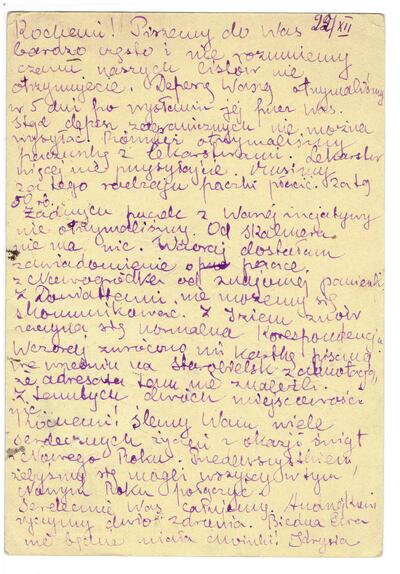 22/XII
Kochani! Piszemy do Was
bardzo często i nie rozumiemy
czemu naszych listów nie
otrzymujecie. Depeszę Waszą otrzymaliśmy
w 5 dni po wysłaniu jej przez Was.
Stąd depesz zagranicznych nie można
wysyłać. Również otrzymaliśmy
paczuszkę z lekarstwami. Lekarstw
więcej nie przysyłajcie. Musimy
za tego rodzaju paczki płacić. Za tą
50 rb.
Żadnych paczek z Waszej inicjatywy
nie otrzymaliśmy. Od
nie ma nic. Wczoraj dostałam
zawiadomienie o paczce
z Nowogródka od znajomej panienki
Z nie możemy się
skomunikować. Z znów
zaczyna się normalna korespondencja
Wczoraj zwrócono mi kartkę pisaną
we wrześniu na Starobielsk z adnotacją,
że adresata tam nie znaleźli.
Z tamtych dwóch miejscowości
nic.
Kochani! Ślemy Wam wiele
serdecznych życzeń z okazji świąt
i Nowego Roku. Przedewszystkiem
żebyśmy się mogli wszyscy w tym
Nowym Roku połączyć.
Serdecznie Was całujemy.
życzymy dużo zdrowia. Biedna Ewa
nie będzie miała choinki!